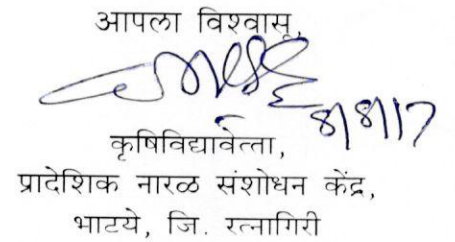 आपला विश्वासू,
8/8/17
कृषिविद्यावेत्ता,
प्रादेशिक नारळ संशोधन केंद्र,
भाट्ये, जि. रत्नागिरी